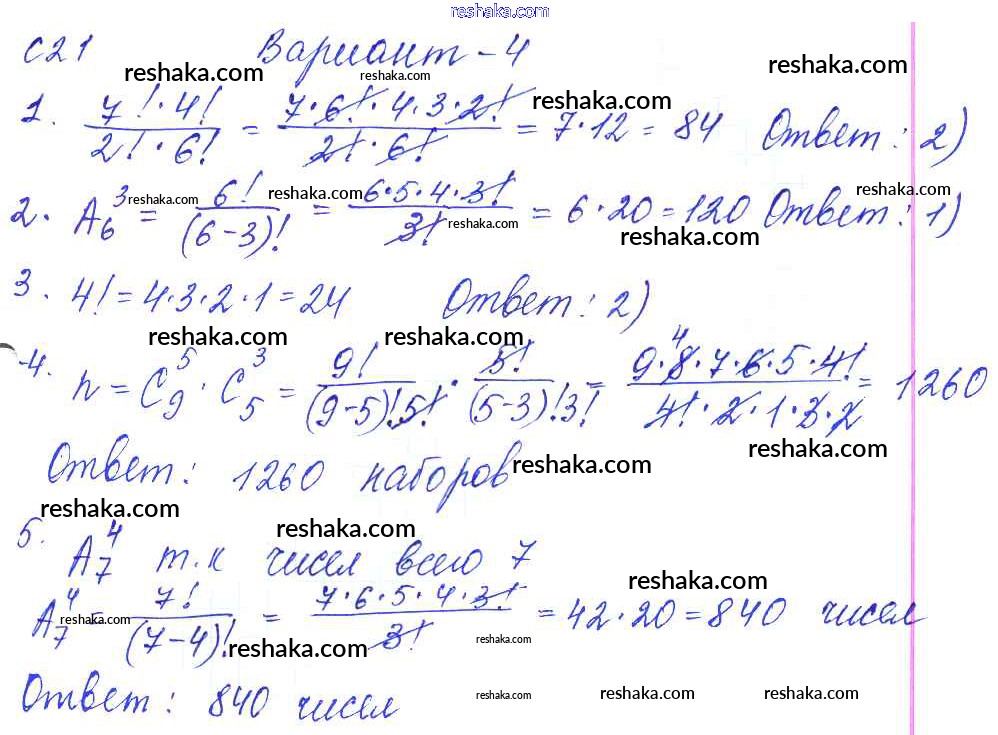 reshaka.com
С21 Вариант-4
reshaka.com reshaka.com reshaka.com
1. 7!·4!/2!·6! = 7·6!·4·3·2!/2!·6! = 7·12 = 84 Ответ: 2)
reshaka.com
2. A₆³ = 6!/(6-3)! = 6·5·4·3!/3! = 6·20=120 Ответ: 1)
reshaka.com reshaka.com reshaka.com reshaka.com reshaka.com
3. 4!=4·3·2·1=24 Ответ: 2)
reshaka.com reshaka.com
4. n = C₉⁵ · C₅³ = 9!/(9-5)!5! · 5!/(5-3)!3! = 9·8·7·6·5·4!/4!·2·1·3·2 = 1260
4
Ответ: 1260 наборов
reshaka.com reshaka.com
reshaka.com reshaka.com
5. A₇⁴ т.к чисел всего 7
reshaka.com
A₇⁴ = 7!/(7-4)! = 7·6·5·4·3!/3! = 42·20=840 чисел
reshaka.com reshaka.com reshaka.com
Ответ: 840 чисел
reshaka.com reshaka.com reshaka.com